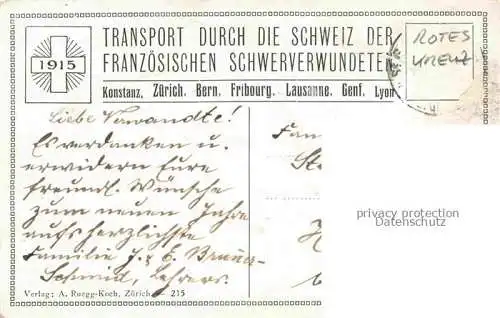 1915
TRANSPORT DURCH DIE SCHWEIZ DER
FRANZÖSISCHEN SCHWERVERWUNDETEN
Konstanz, Zürich. Bern. Fribourg. Lausanne. Genf. Lyon
ROTES
KREUZ
Liebe Verwandte!
Es verdanken u.
erwidern Eure
freundl. Wünsche
zum neuen Jahre
aufs herzlichste
Familie J. & E. Brunner-
Schmid, Lehrers.
Fam
St
H
privacy protection
Datenschutz
Verlag: A. Ruegg-Koch, Zürich. — 215